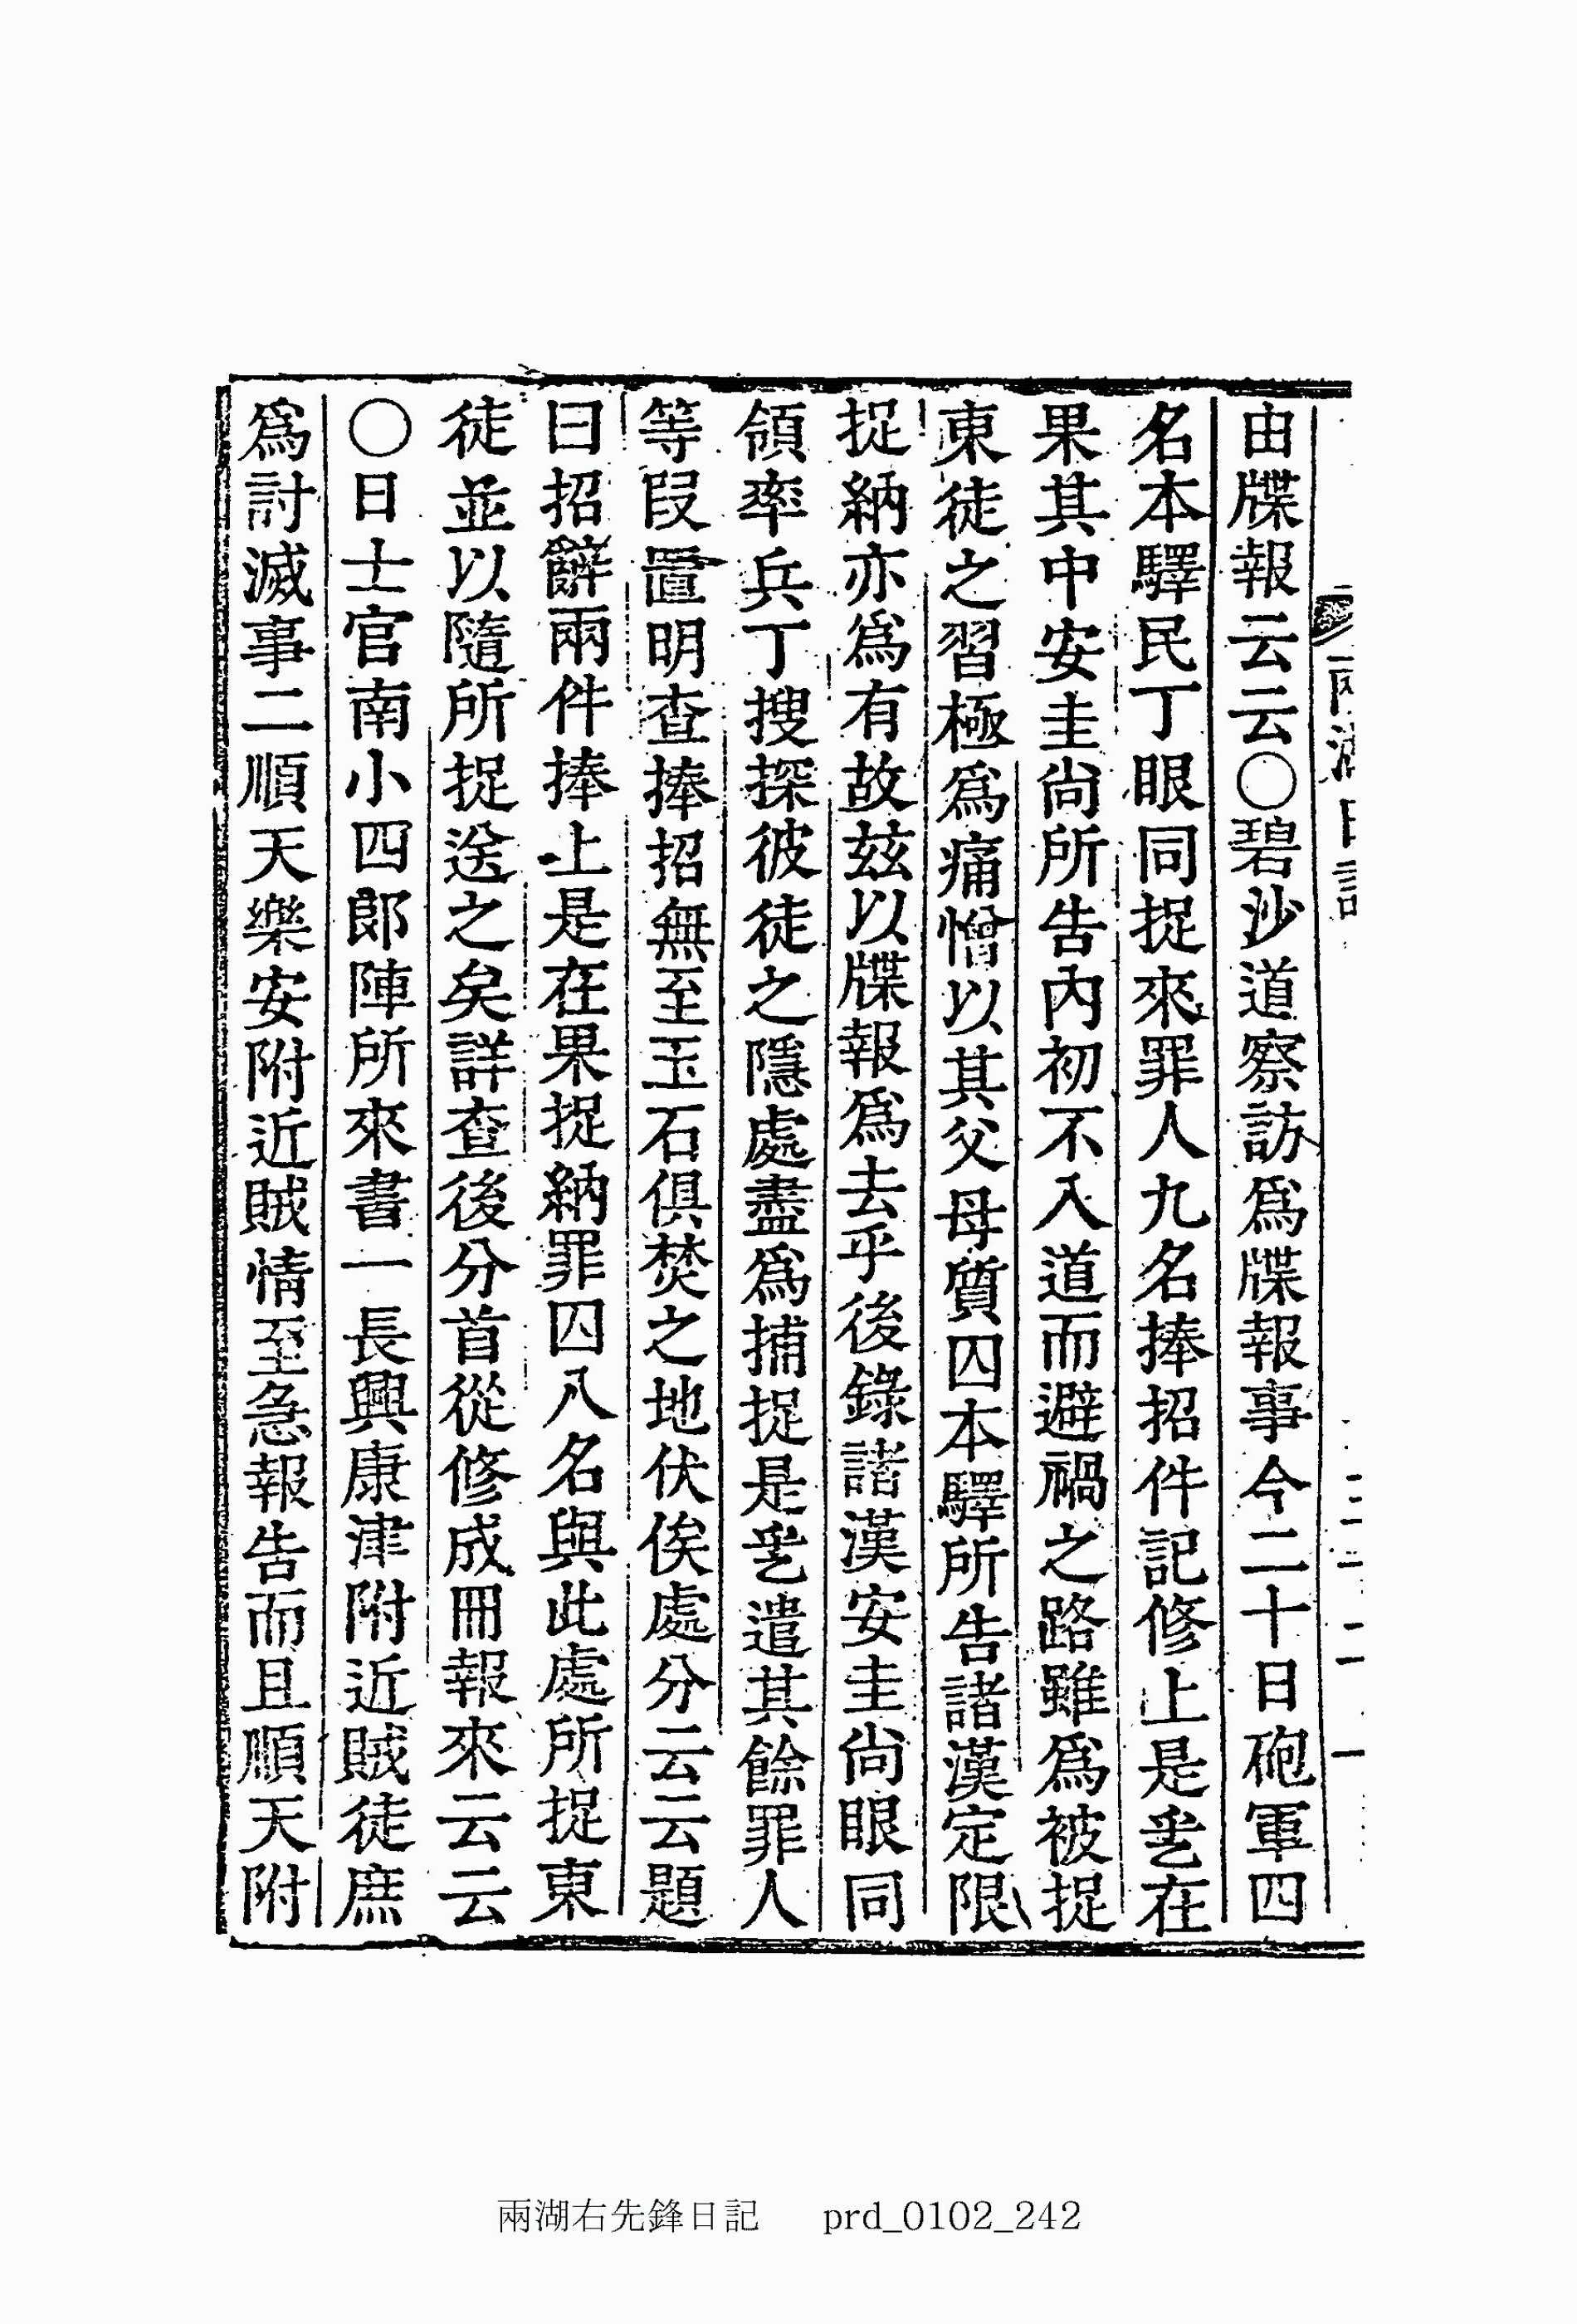 由牒報云云〇碧沙道察訪爲牒報事今二十日砲軍四
名本驛民丁眼同捉來罪人九名捧招件記修上是乎在
果其中安圭尙所告內初不入道而避禍之路雖爲被捉
東徒之習極爲痛憎以其父母質囚本驛所告諸漢定限
捉納亦爲有故玆以牒報爲去乎後錄諸漢安圭尙眼同
領率兵丁搜探彼徒之隱處盡爲捕捉是乎遣其餘罪人
等段置明查捧招無至玉石俱焚之地伏俟處分云云題
曰招辭兩件捧上是在果捉納罪囚八名與此處所捉東
徒並以隨所捉送之矣詳查後分首從修成冊報來云云
〇日士官南小四郎陣所來書一長興康津附近賊徒庶
爲討滅事二順天樂安附近賊情至急報告而且順天附
兩湖日記
兩湖右先鋒日記 prd_0102_242